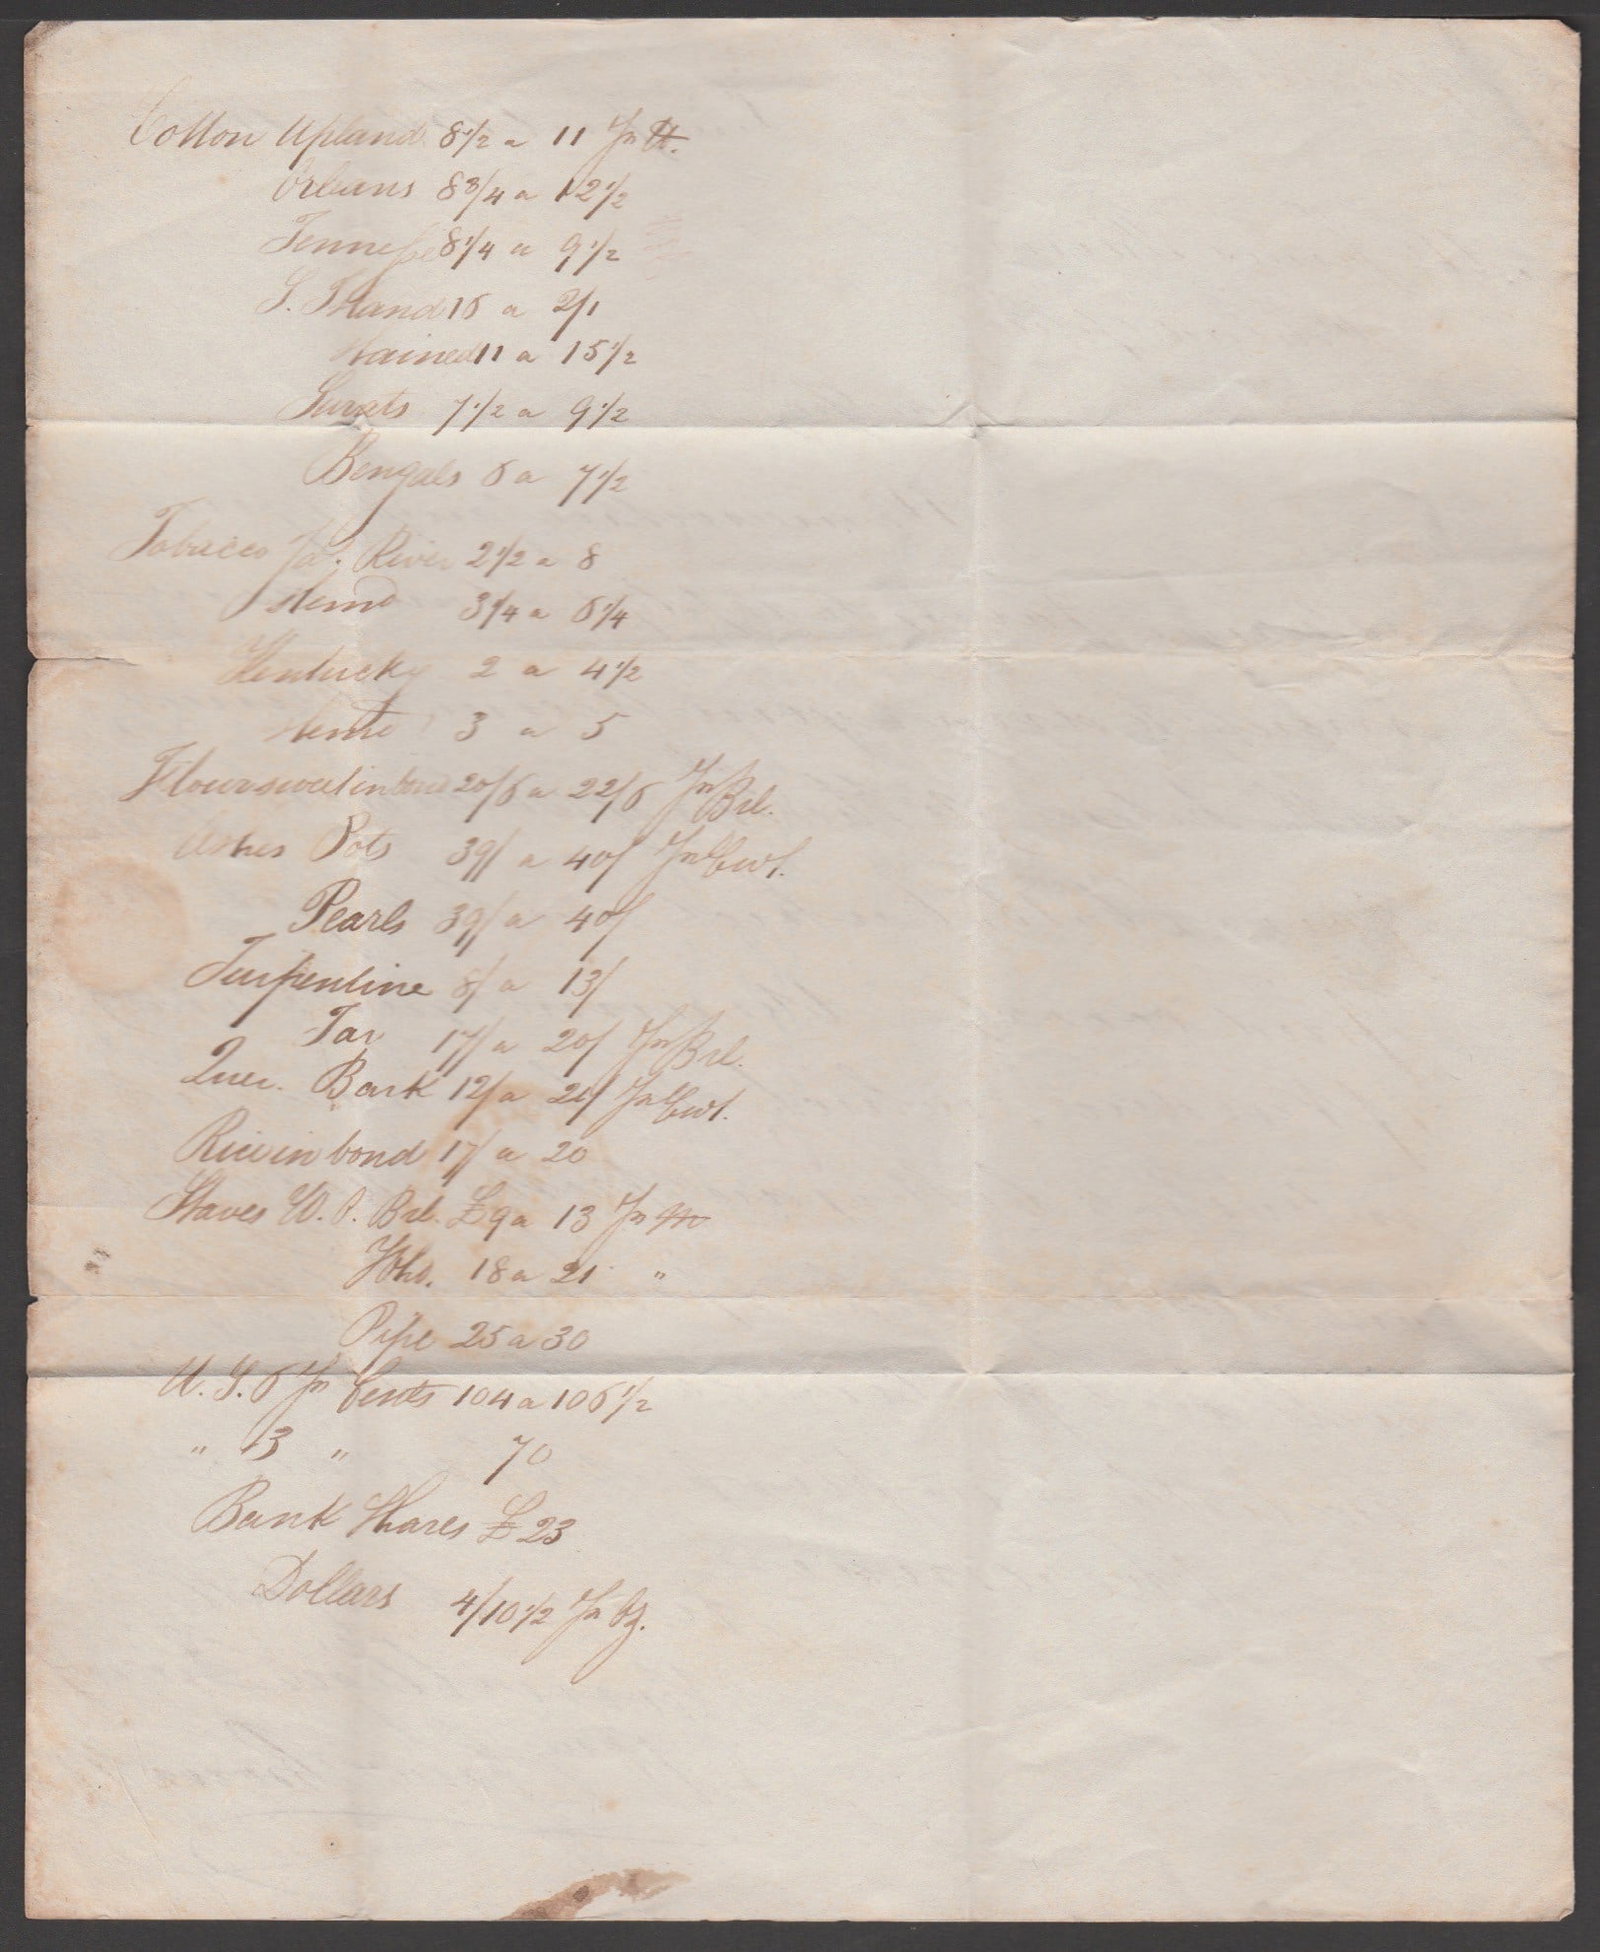 Cotton Upland 8 1/2 a 11 pr lb.
Orleans 8 3/4 a 12 1/2
Tennessee 8 1/4 a 9 1/2
S. Island 16 a 2/1
Stained 11 a 15 1/2
Surats 7 1/2 a 9 1/2
Bengals 6 a 7 1/2
Tobacco Ja. River 2 1/2 a 8
Stemd 3 1/4 a 6 1/4
Kentucky 2 a 4 1/2
Stemd 3 a 5
Flour sweet in bond 20/6 a 22/6 pr Brl.
Ashes Pots 39/ a 40/ pr Cwt.
Pearls 39/ a 40/
Turpentine 8/ a 13/
Tar 17/ a 20/ pr Brl.
Quer. Bark 12/ a 21/ pr Cwt.
Rice in bond 17/ a 20
Staves W. O. Brl. £9 a 13 pr M
Hhd. 18 a 21 "
Pipe 25 a 30
U. S. 6 pr Cents 104 a 106 1/2
" 3 " 70
Bank Shares £23
Dollars 4/10 1/2 pr Oz.